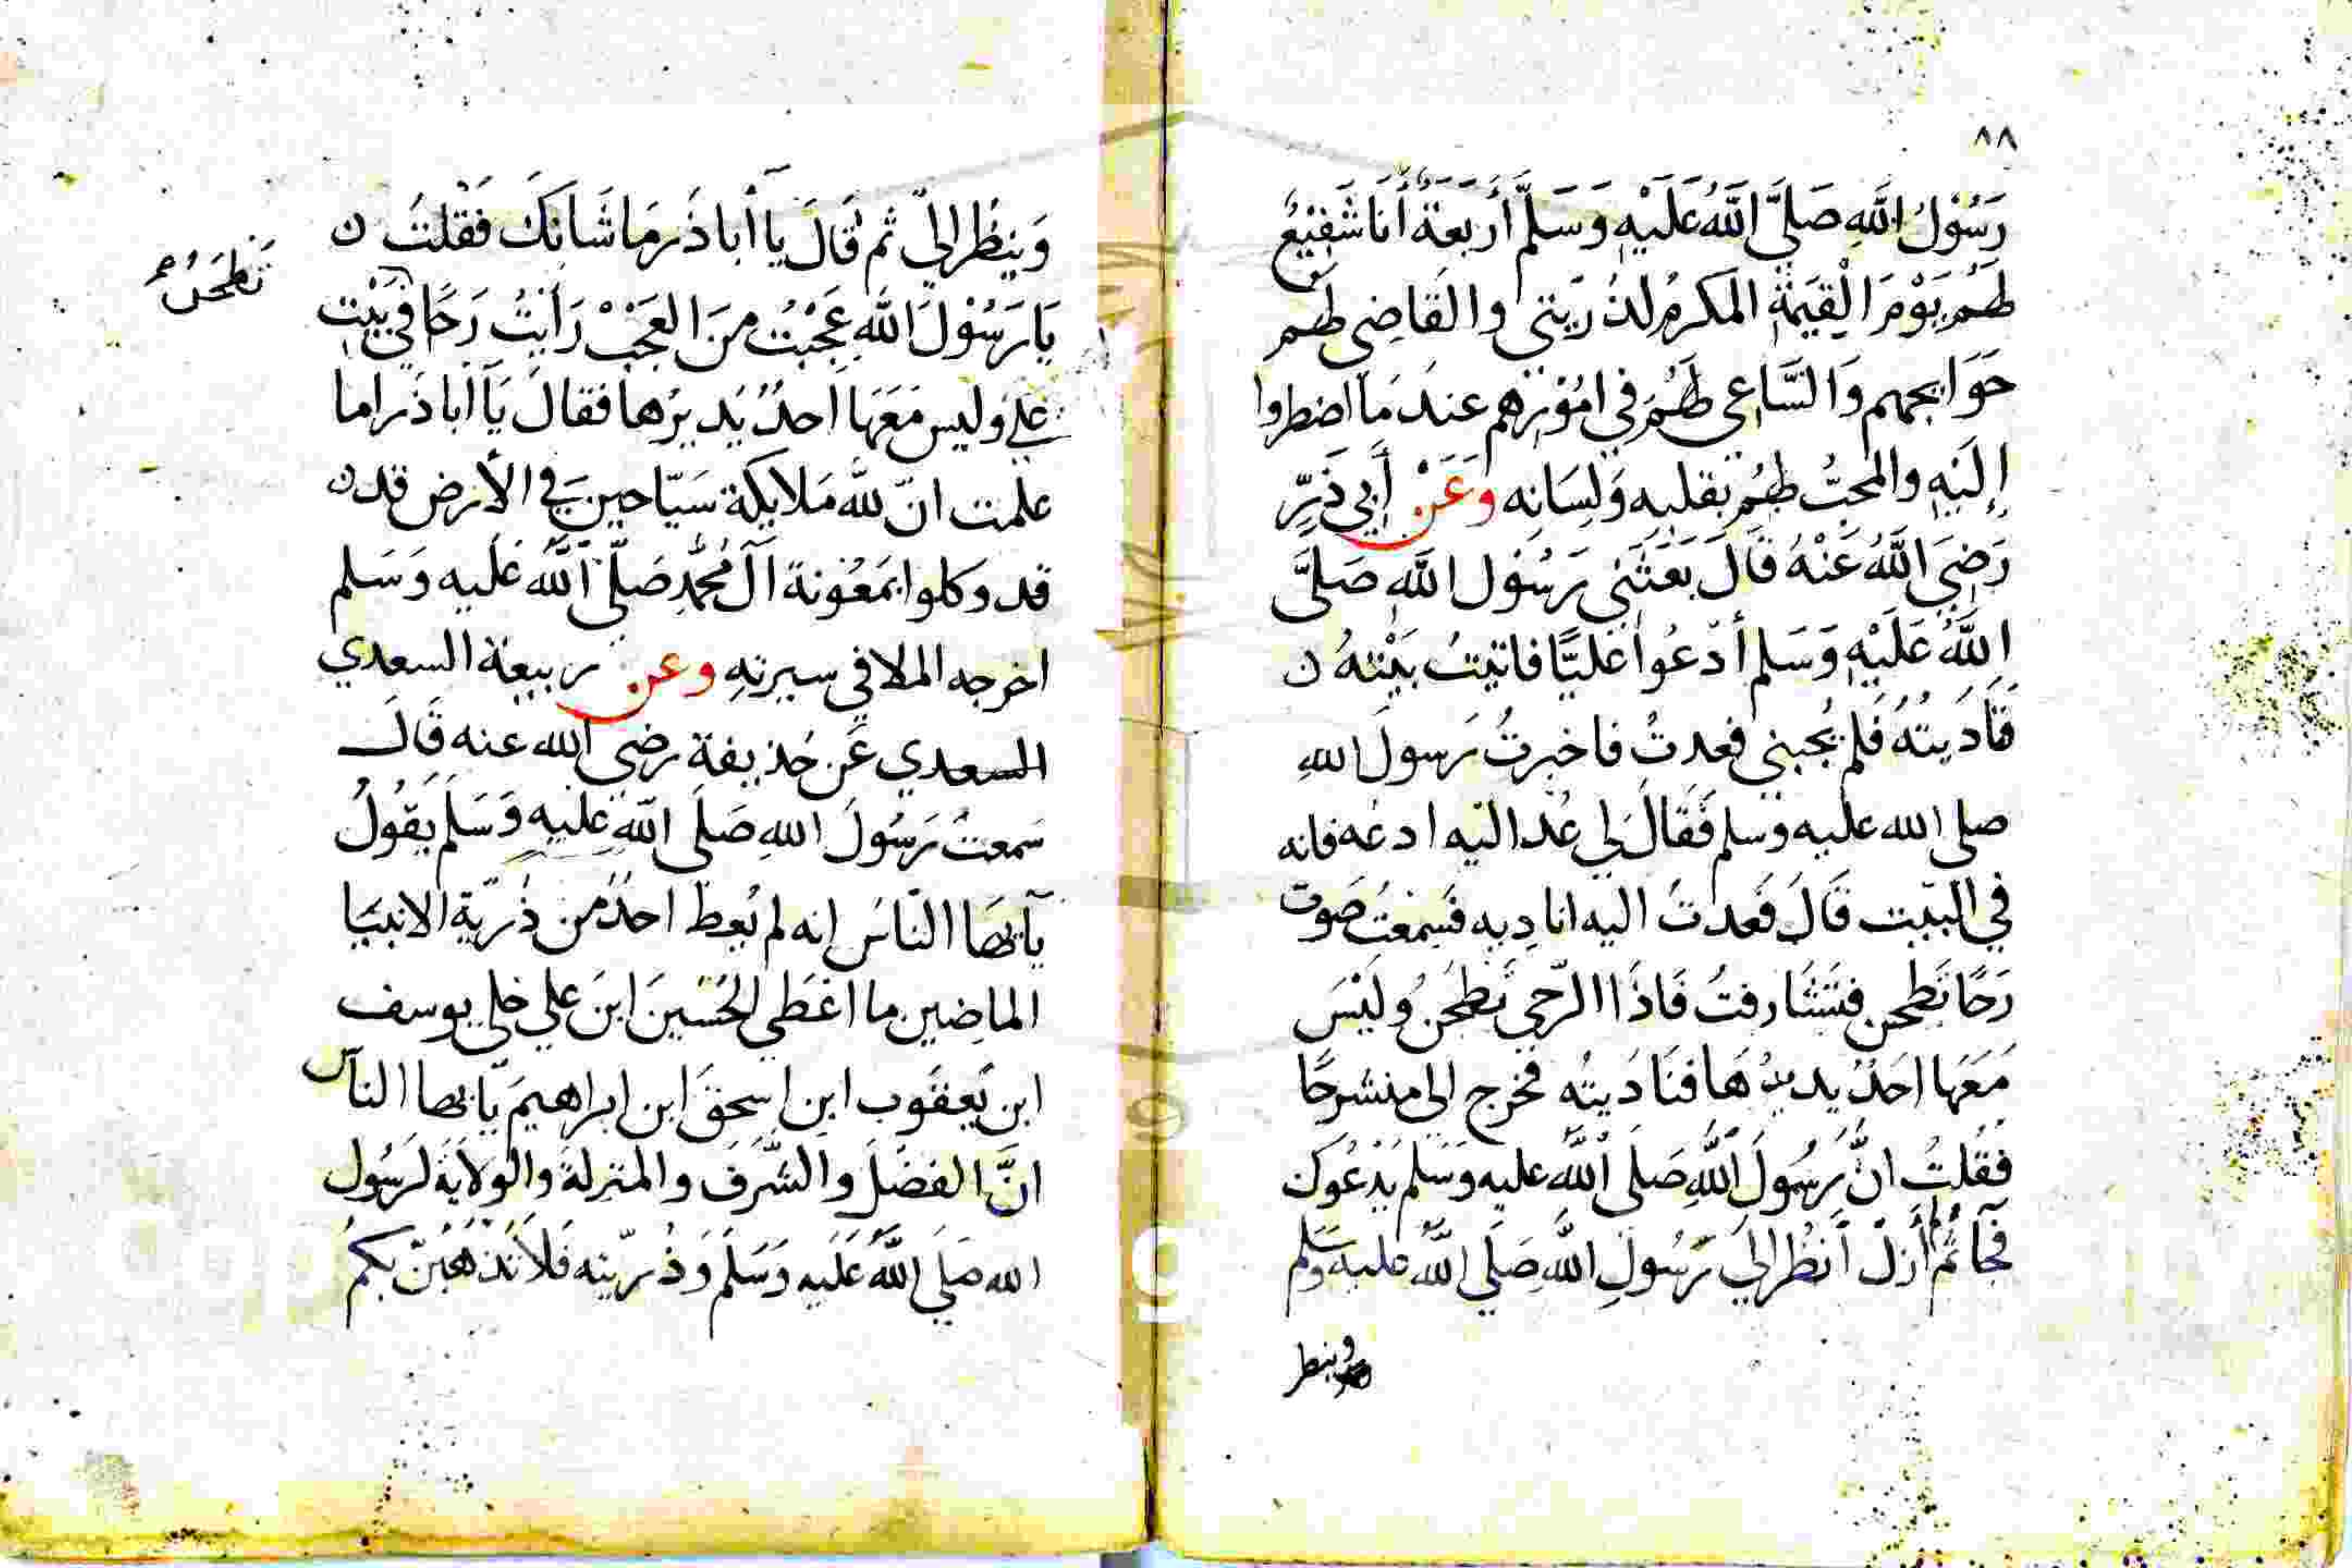 ٨٨
رَسُوْلُ اللهِ صَلَّى اللهُ عَلَيْهِ وَسَلَّمَ أَرْبَعَةٌ أَنَا شَفِيْعٌ
لَهُمْ يَوْمَ الْقِيَمَةِ المكرمُ لِذُرِّيَتي والقَاضِي لهم
حَوَايجهم وَالسَّاعِي لَهُمْ فِي امُوْرِهم عندَ مَا اضطروا
إِلَيْهِ والمحبُّ لهُم بقلبِه وَلِسَانِه وَعَنْ أَبِي ذَرٍّ
رَضِيَ اللهُ عَنْهُ قَالَ بَعَثَنِي رَسُوْل اللهِ صَلَّى
اللهُ عَلَيْهِ وَسَلم أدْعُوا عَليًّا فاتيتُ بَيْتهُ ن
فَنَادَيتُهُ فَلم يُجبني فعدتُ فاخبرتُ رَسولَ اللهِ
صلى الله عليه وسلم فَقَالَ لِي عُد اليه ادعُه فانه
في البَيْت قَالَ فَعدتُ اليه اناديِه فَسمعْتُ صَوت
رَحًا تَطحن فتشَارفتُ فَاذَا الرّحي تَطحَنُ وليْسَ
مَعَهَا احَدٌ يديرُهَا فنَادَيتُه فخرج الى منشرحًا
فقلتُ انَّ رَسُولَ اللهِ صَلى اللهُ عليه وَسَلم يَدْعُوك
فجآ ثُم لَم أزلْ أنظُر الى رَسُولِ اللهِ صَلَي اللهُ عليه وسلم
وينطر
وَينظُر اليّ ثم قَالَ يَا أبا ذَر مَا شَانكَ فَقْلتُ ن
يَا رَسُوْلَ اللهِ عَجْبْتُ منَ العَجَبْ رَايتُ رَحًا في بَيْتِ
تَطْحَنُ
عَلي وليس مَعَهَا احدٌ يديرُها فقالَ يَا اَبا ذَر اما
علمت انّ لله مَلايكة سَيّاحين في الأرض قد ن
قد وكلوا بمَعُونة آل مُحمَّدٍ صَلّى اللهُ عَليه وَسَلم
اخرجه الملا في سيرتهِ وعن ربيعة السعدي
السعدي عَن حُذيفة رضي الله عنه قَالَ
سَمعتُ رَسُولَ اللهِ صَلَى اللهِ عليهِ وَسَلم يَقُولُ
يآ ايهَا النّاسُ انه لم يُعط احدٌ من ذُرّية الانبيَا
الماضِين ما اعْطي الحُسَينَ ابنَ علي خلي يوسف
ابن يَعقوب ابن اسحقَ ابن ابراهيمَ يَا ايها النآس
انَّ الفضلَ وَالشَّرَفَ والمنزلةَ وَالوِلايَةَ لرَسُول
الله صَلَي اللهُ عَلَيه وَسَلمَ وَذُرّيته فَلا تَذهَبَنّ بكمُ